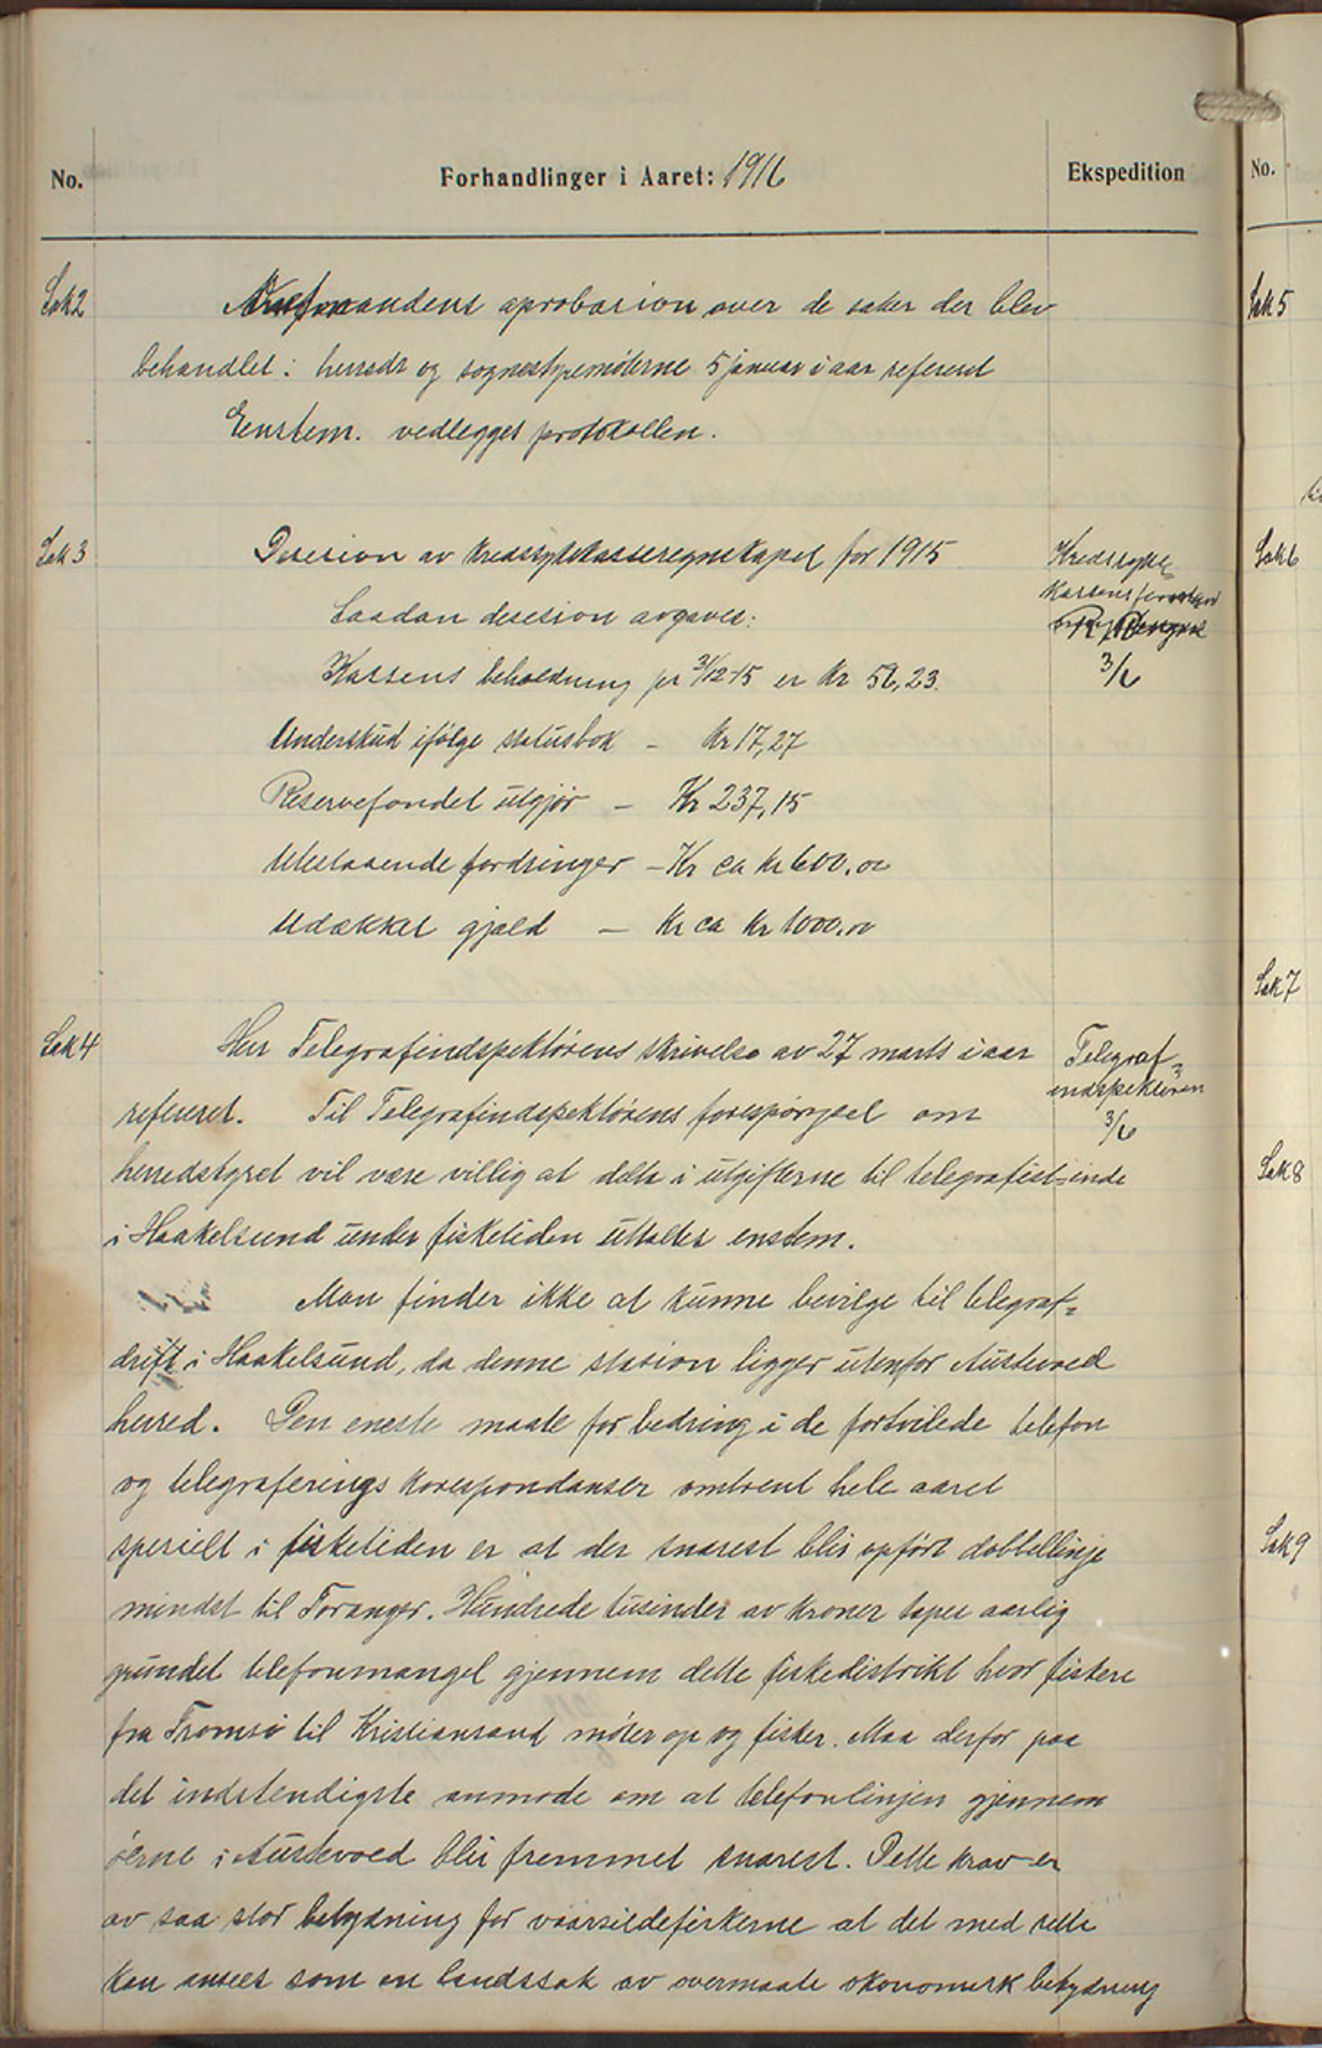 No.
Forhandlinger i Aaret: 1916
Ekspedition
No.
Sak 2
aprobasion over de saker der blev
behandlet i herreds og sognestyremøterne 5 januar i aar referert
Enstem. vedlegges protokollen.
Sak 3
Desision av kredssykekasseregnskapet for 1915
Kredssyke
kassens
Saadan desision avgaves:
Kassens beholdning pr 31/12-15 er Kr 56,23.
3/6
Underskud ifølge statusbok – Kr 17,27
Reservefondet utgjør – Kr 237,15
Utestaaende fordringer – Kr ca kr 600,00
Udækket gjæld – Kr ca Kr 1000,00
Sak 4
Herr Telegrafindspektørens skrivelse av 27 marts i aar
Telegraf-
indspektøren
3/6
refereret. Til Telegrafindspektørens forespørgsel om
herredstyret vil være villig at delta i utgifterne til telegrafist-inde
i Haakelsund under fisketiden uttaltes enstem.
Man finder ikke at kunne bevilge til telegraf=
drift i Haakelsund, da denne stasion ligger utenfor Austevoed
herred. Den eneste maate for bedring i de fortvilede telefon
og telegraferings korespondanser omtrent hele aaret
spesielt i fisketiden er at der snarest blir opført dobbellinje
mindst til Toranger. Hundrede tusinder av kroner tapes aarlig
grundet telefonmangel gjennem dette fiskedistrikt hvor fiskere
fra Tromsø til Kristiansand møter op og fisker. Maa derfor paa
det indstendigste anmode om at telefonlinjen gjennem
øerne i Austevoed blir fremmet snarest. Dette krav er
av saa stor betydning for vaarsildefiskerne at det med rette
kan ansees som en landssak av overmaate økonomisk betydning
Sak 5
Sak 6
Sak 7
Sak 8
Sak 9